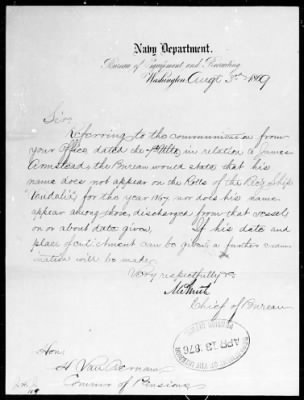 Navy Department.
Bureau of Equipment and Recruiting
Washington Augt 3rd 1869
Sir
Referring to the communication from
your Office dated the Ulto in relation to James
Armstead, the Bureau would state that his
name does not appear on the Rolls of the Recg Ship
"Vandalia" for the year nor does his name
appear among those discharged from that vessel
on or about date given. If his date and
place of enlistment can be given a further exam-
ination will be made.
Very respectfully &c
Smith
Chief of Bureau
Hon:
H Van Aernam
Commr of Pensions
APR 13 1876